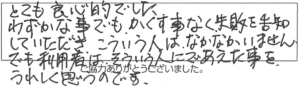 とても良心的でした
わずかな事でもかくす事なく失敗を告知
していただき こういう人は、なかなかいません
でも利用者は、そういう人にであえた事を
うれしく思うのです。
ご協力ありがとうございました。